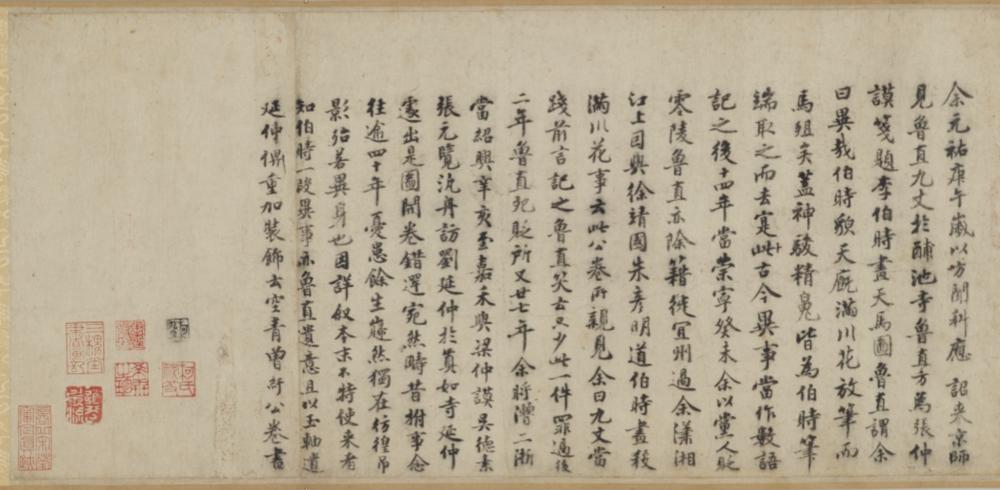 余元祐庚午歲以方聞科應詔来京師
見魯直九丈於酺池寺魯直方為張仲
謨箋題李伯時畫天馬圖魯直謂余
曰異哉伯時貌天廐滿川花放筆而
馬殂矣蓋神駿精魄皆為伯時筆
端取之而去寔此古今異事當作數語
記之後十四年當崇寧癸未余以黨人貶
零陵魯直亦除籍徙宜州過余瀟湘
江上因與徐靖國朱彥明道伯時畫殺
滿川花事云此公卷所親見余曰九丈當
踐前言記之魯直笑云只少此一件罪過後
二年魯直死貶所又廿七年余將漕二浙
當紹興辛亥至嘉禾與梁仲謨吳德素
張元覽汎舟訪劉延仲於真如寺延仲
遽出是圖開卷錯愕宛然疇昔拊事念
往逾四十年憂患餘生巋然獨在彷徨吊
影殆若異身也因詳叙本末不特使来者
知伯時一段異事亦魯直遺意且以玉軸遺
延仲俾重加裝飾云空青曾紆公卷書